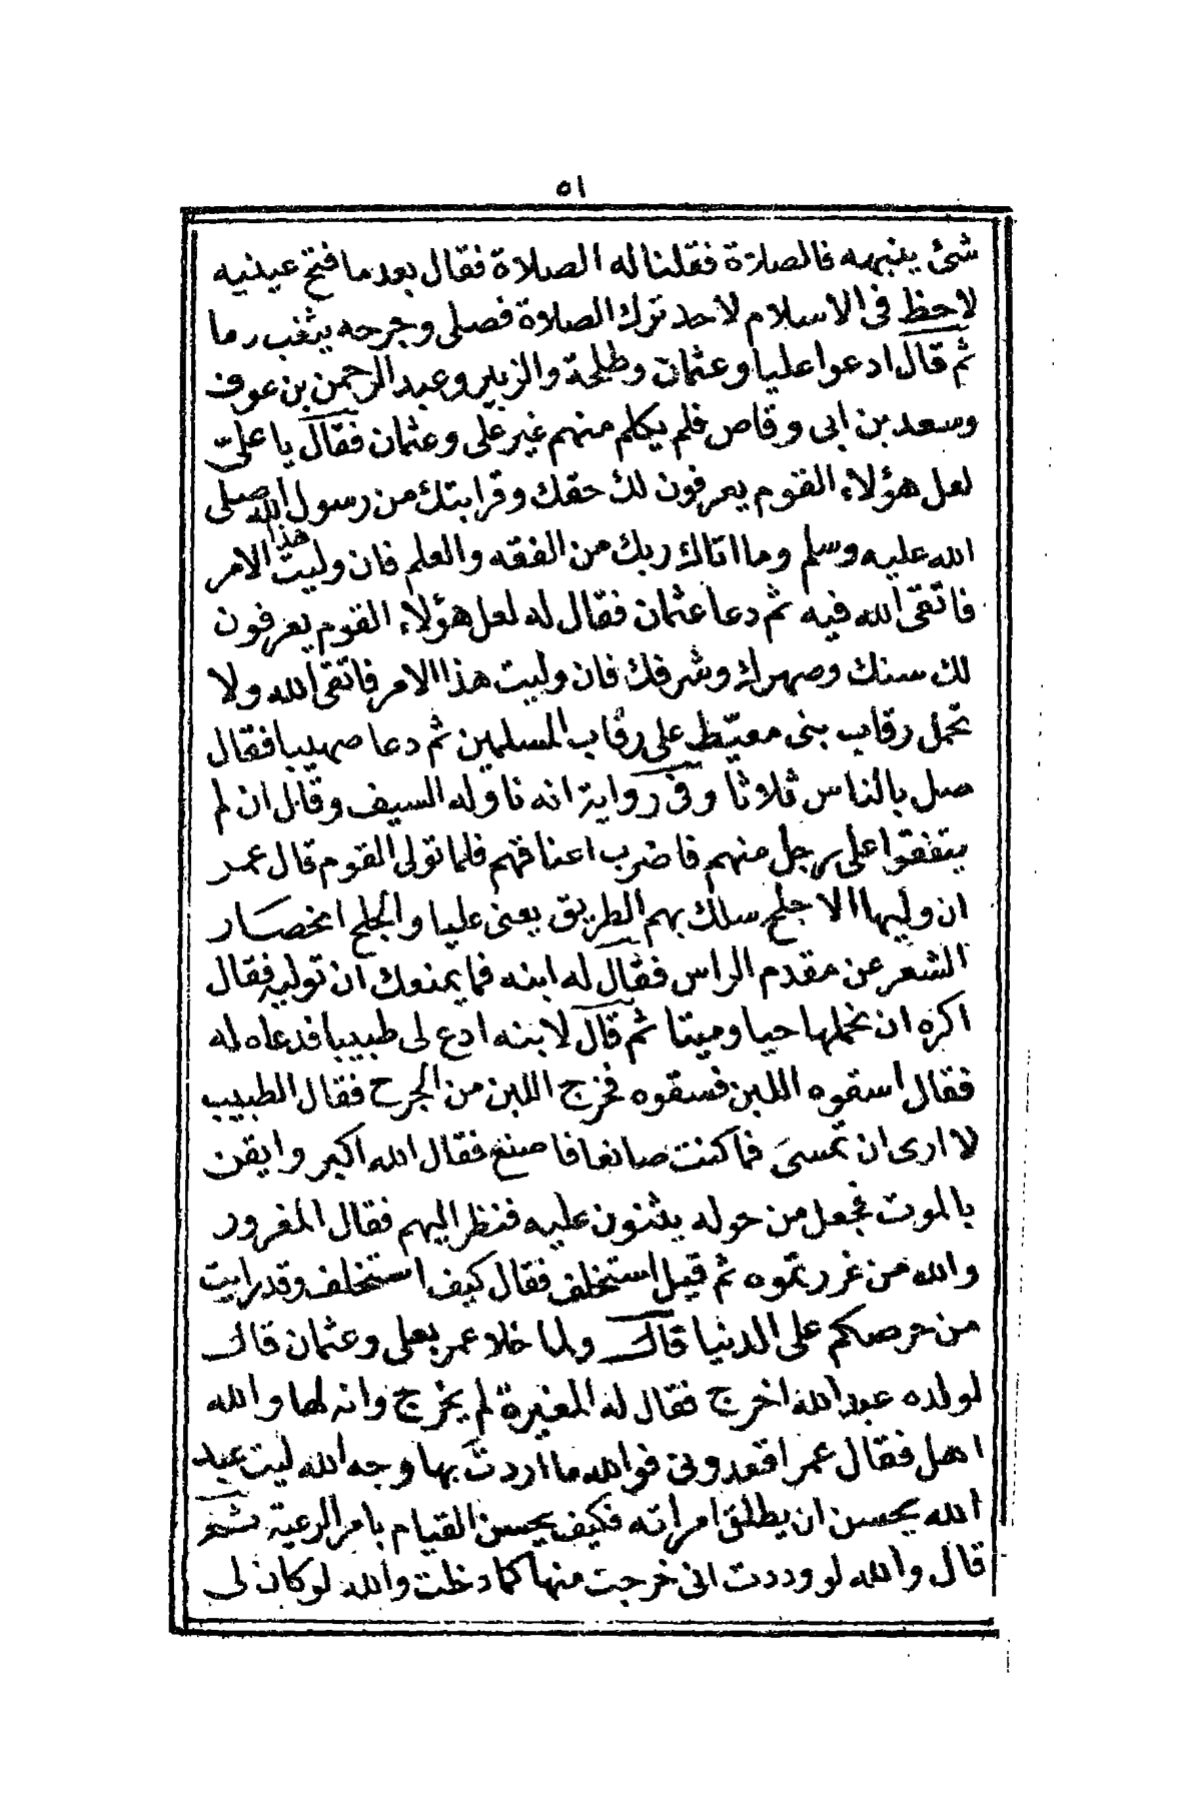 ٥١
شئ ينبهه فالصلاة فقلنا له الصلاة فقال بعد ما فتح عينيه
لاحظ فى الاسلام لاحد ترك الصلاة فصلى وجرحه يثغب رما
ثم قال ادعوا عليا وعثمان وطلحة والزبير وعبد الرحمن بن عوف
وسعد بن ابى وقاص فلم يكلم منهم غير على وعثمان فقال يا على
لعل هؤلاء القوم يعرفون لك حقك وقرابتك من رسول الله صلى
الله عليه وسلم وما اتاك ربك من الفقه والعلم فان وليت هذا الامر
فاتقى الله فيه ثم دعا عثمان فقال له لعل هؤلاء القوم يعرفون
لك سنك وصهرك وشرفك فان وليت هذا الامر فاتقى الله ولا
تحمل رقاب بنى معيّط على رقاب المسلمين ثم دعا صهيبا فقال
صل بالناس ثلاثا وفى رواية انه ناوله السيف وقال ان لم
يتفقوا على رجل منهم فاضرب اعناقهم فلما تولى القوم قال عمر
ان وليها الاجلح سلك بهم الطريق يعنى عليا والجلح انحصار
الشعر عن مقدم الراس فقال له ابنه فما يمنعك ان توليه فقال
اكره ان نحملها حيا وميتا ثم قال لابنه ادع لى طبيبا فدعاه له
فقال اسقوه اللبن فسقوه فخرج اللبن من الجرح فقال الطبيب
لا ارى ان تمسى فما كنت صانعا فاصنع فقال الله اكبر وايقن
بالموت فجعل من حوله يثنون عليه فنظر اليهم فقال المغرور
والله من غررتموه ثم قيل استخلف فقال كيف استخلف وقد رايت
من حرصكم على الدنيا قال ولما خلا عمر بعلى وعثمان قال
لولده عبد الله اخرج فقال له المغيرة لم يخرج وانه لها والله
اهل فقال عمر اقعدونى فوالله ما اردت بها وجه الله ليت عبد
الله يحسن ان يطلق امراته فكيف يحسن القيام بامر الرعية ثم
قال والله لو وددت انى خرجت منها كما دخلت والله لو كان لى